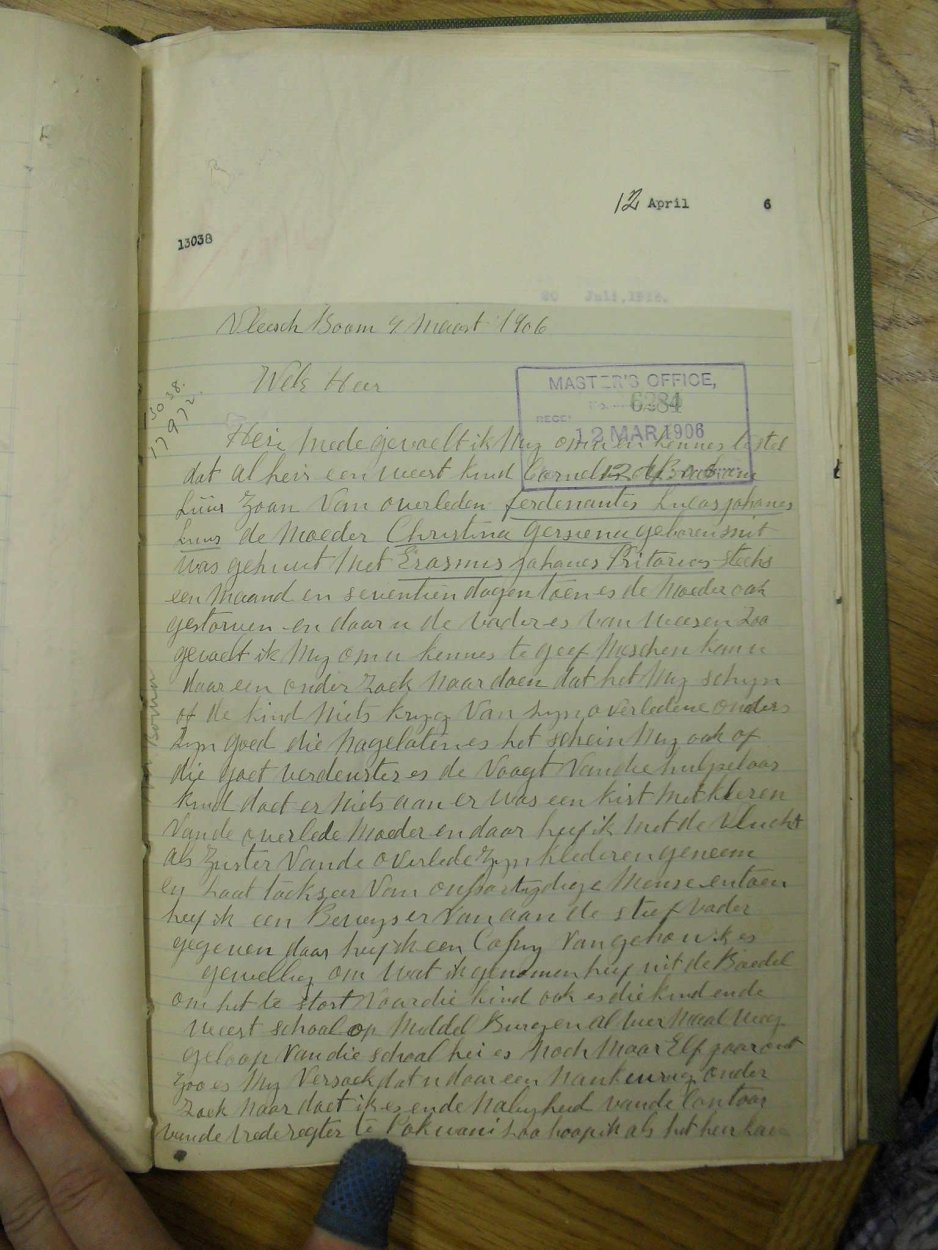 12 April 6
13038
20 Juli, 1906.
Vleesch Boom 4 Maart 1906
13038.
17972
Wele Heer
MASTER'S OFFICE,
No. 6284
RECE
12 MAR 1906
Hier mede gevoelt ik my om u in kennes te stel
dat al heir een weest kind Cornelis
Luus Zoan van overleden ferdenantis Lucas johanes
Luus de moeder Christina Gersiena geboren smit
was gehuut met Erasmus johanes Pritorios slechs
een maand en seventien dagen toen es de moeder ook
gestorven en daar u de vader es van weesen Zoo
gevoelt ik my om u kennes te geef Meschen kan u
daar een onder Zoek naar doen dat het my schyn
of de kind niets kryg van syn overledene ouders
Zyn goed die nagelaten es het schein my ook of
die goet verdeuster es de Voogt van die hulpeloos
kind doet er niets aan er was een kist met kleren
van de overlede moeder en daar heef ik met de
als Zuster van de overlede Zyn klederen geneem
en laat tackseer van onpartydige mense en toen
heef ik een Bewys er van aan de stief vader
gegeven daar heef ik een Copiy van gehou ik es
gewellig om wat ik genomen heef uit de Boedel
om het te stort voor die kind ook es die kind ende
weest school op Meddel Burg en al vier maal weg
geloop van die school hei es noch maar Elf jaar out
Zoo es my Versoek dat u daar een nankeurig onder
Zoek naar doet ik es ende nabyheid van de Contoor
van de vrede regter te Pokwani Zoo hoop ik als het heer